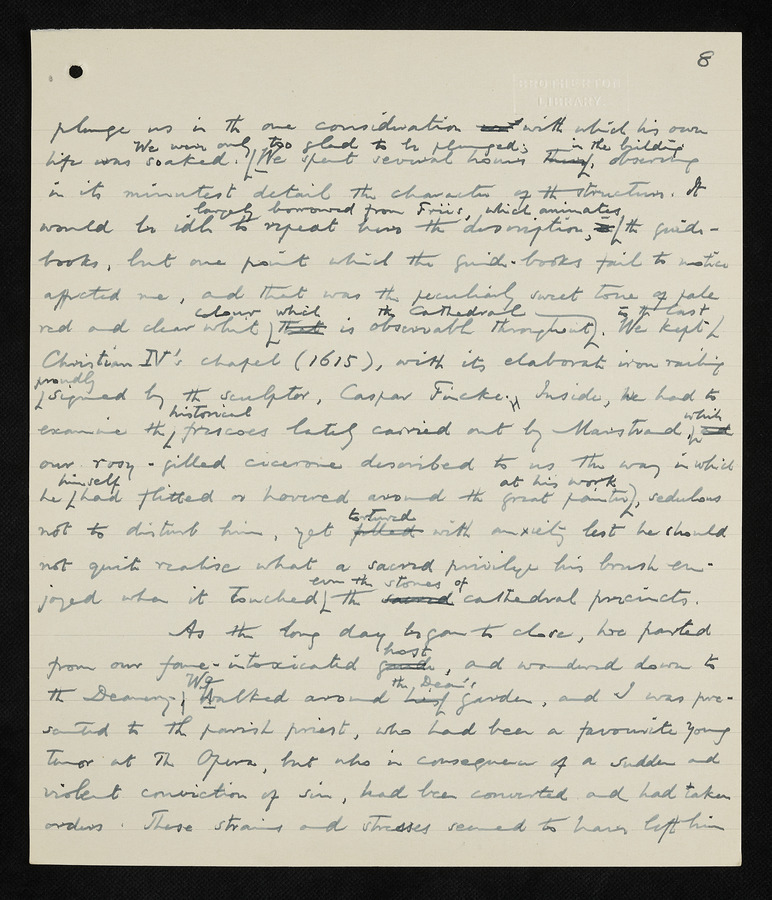 8
BROTHERTON
LIBRARY
plunge us in the one consideration with which his own
We were only too glad to be plunged; in the building
life was soaked. We spent several hours there, observing
in its minutest detail the character of the structure. It
largely borrowed from Friis, which animates
would be idle to repeat here the description, the guide-
books, but one point which the guide-books fail to notice
affected me, and that was the peculiarly sweet tone of pale
colour which the Cathedral to the last
red and clear white that is observable throughout. We kept
Christian IV's chapel (1615), with its elaborate iron railing
proudly
signed by the sculptor, Caspar Fincke. Inside, we had to
historical which
examine the frescoes lately carried out by Marstrand, and
our rosy-gilled cicerone described to us the way in which
himself at his work
he had flitted or hovered around the great painter, sedulous
tortured
not to disturb him, yet filled with anxiety lest he should
not quite realise what a sacred privilege his brush en-
even the stones of
joyed when it touched the sacred cathedral precincts.
As the long day began to close, we parted
host
from our fane-intoxicated guide, and wandered down to
We the Dean's
the Deanery; walked around his garden, and I was pre-
sented to the parish priest, who had been a favourite young
tenor at the Opera, but who in consequence of a sudden and
violent conviction of sin, had been converted and had taken
orders. These strains and stresses seemed to have left him